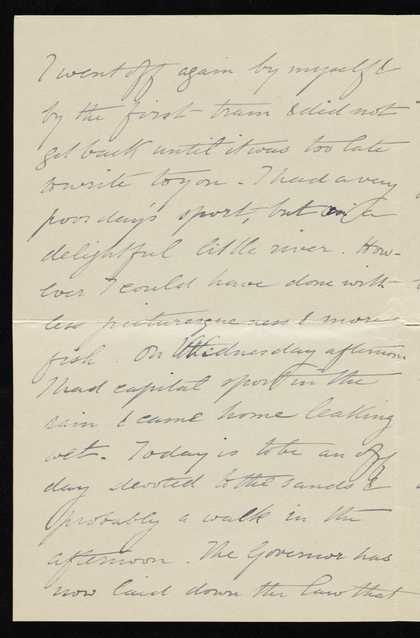 I went off again by myself &
by the first train & did not
get back until it was too late
to write to you - I had a very
poor day's sport, but in a
delightful little river. How-
ever I could have done with
less picturesqueness & more
fish. On Wednesday afternoon
I had capital sport in the
rain & came home leaking
wet. Today is to be an off
day devoted to the sands &
probably a walk in the
afternoon. The Governor has
now laid down the law that